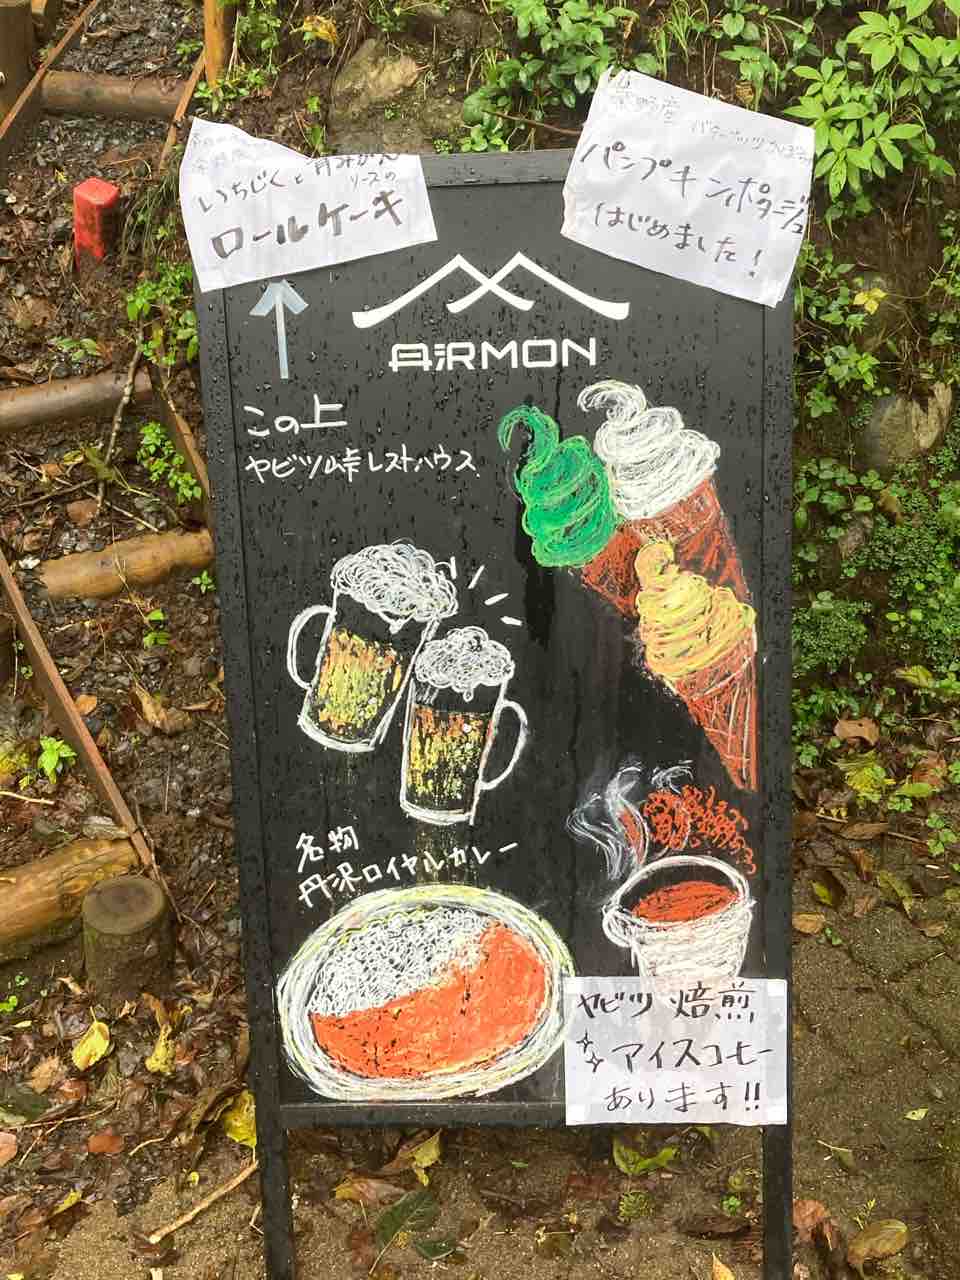 いちじくと青みかん
ソースの
ロールケーキ
秦野産 バターナッツかぼちゃ
パンプキンポタージュ
はじめました!
丹沢MON
この上
ヤビツ峠レストハウス
名物
丹沢ロイヤルカレー
ヤビツ 焙煎
アイスコーヒー
あります!!